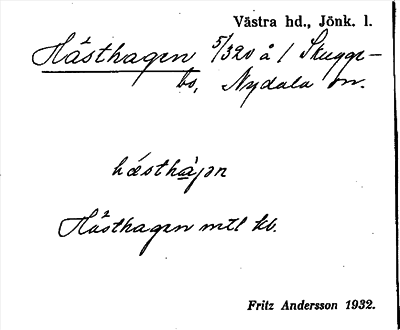 Västra hd., Jönk. l.
Hästhagen 5/320 å 1 Skugge-
bo, Nydala sn.
hǽsthàɡən
Hästhagen mtl kb.
Fritz Andersson 1932.